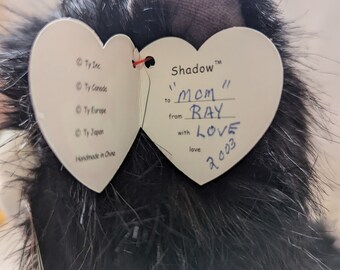 © Ty Inc.
© Ty Canada
© Ty Europe
© Ty Japan
Handmade in China
Shadow™
to "MOM"
from RAY
with LOVE
love 2023